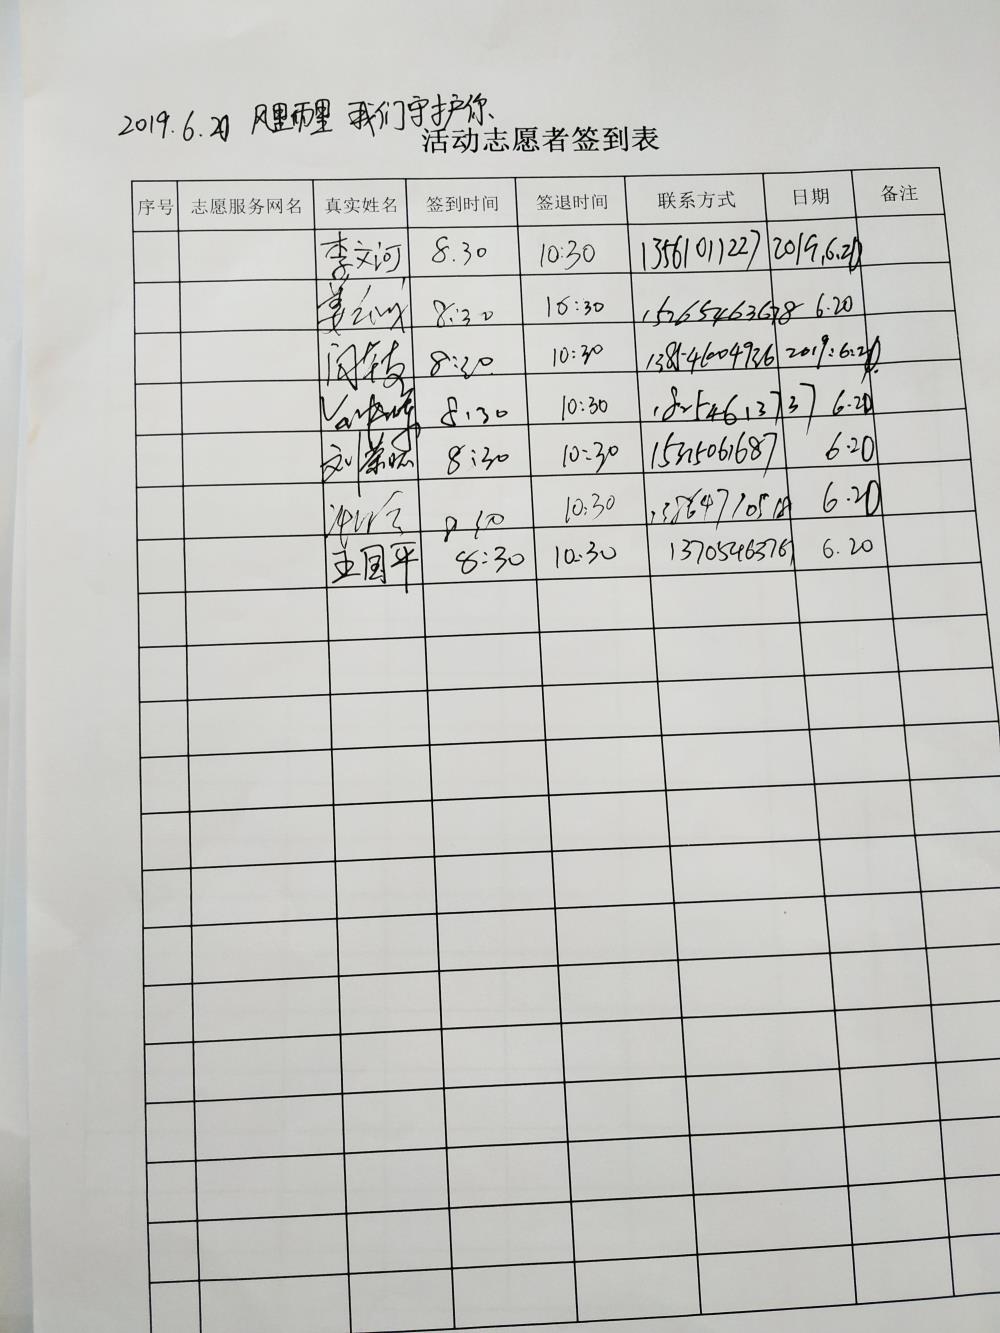 2019.6.20 风里雨里 我们守护你
活动志愿者签到表
序号 志愿服务网名 真实姓名 签到时间 签退时间 联系方式 日期 备注
李文河 8.30 10:30 13561011227 2019.6.20
姜 8:30 10:30 6.20
闫 8:30 10:30 2019.6.20
8:30 10:30 18254613737 6.20
刘荣 8:30 10:30 15315061687 6.20
8:30 10:30 6.20
王国平 8:30 10:30 1370546376 6.20